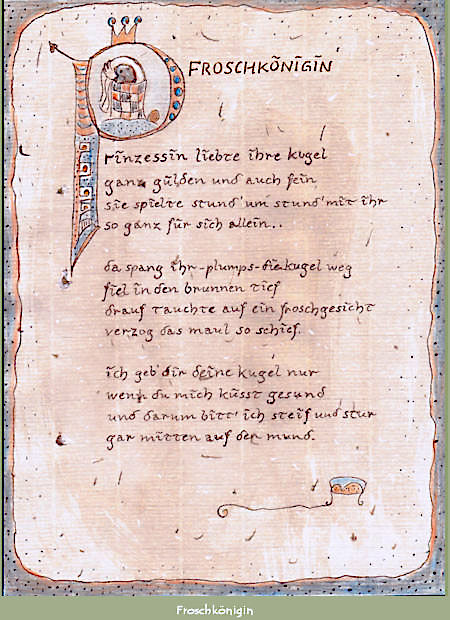 FROSCHKÖNIGIN
Prinzessin liebte ihre kugel
ganz gülden und auch fein
sie spielte stund' um stund' mit ihr
so ganz für sich allein..
da spang ihr-plumps-die kugel weg
fiel in den brunnen tief
drauf tauchte auf ein froschgesicht
verzog das maul so schief.
ich geb' dir deine kugel nur
wenn du mich küsst gesund
und darum bitt' ich steif und stur
gar mitten auf der mund.
Froschkönigin